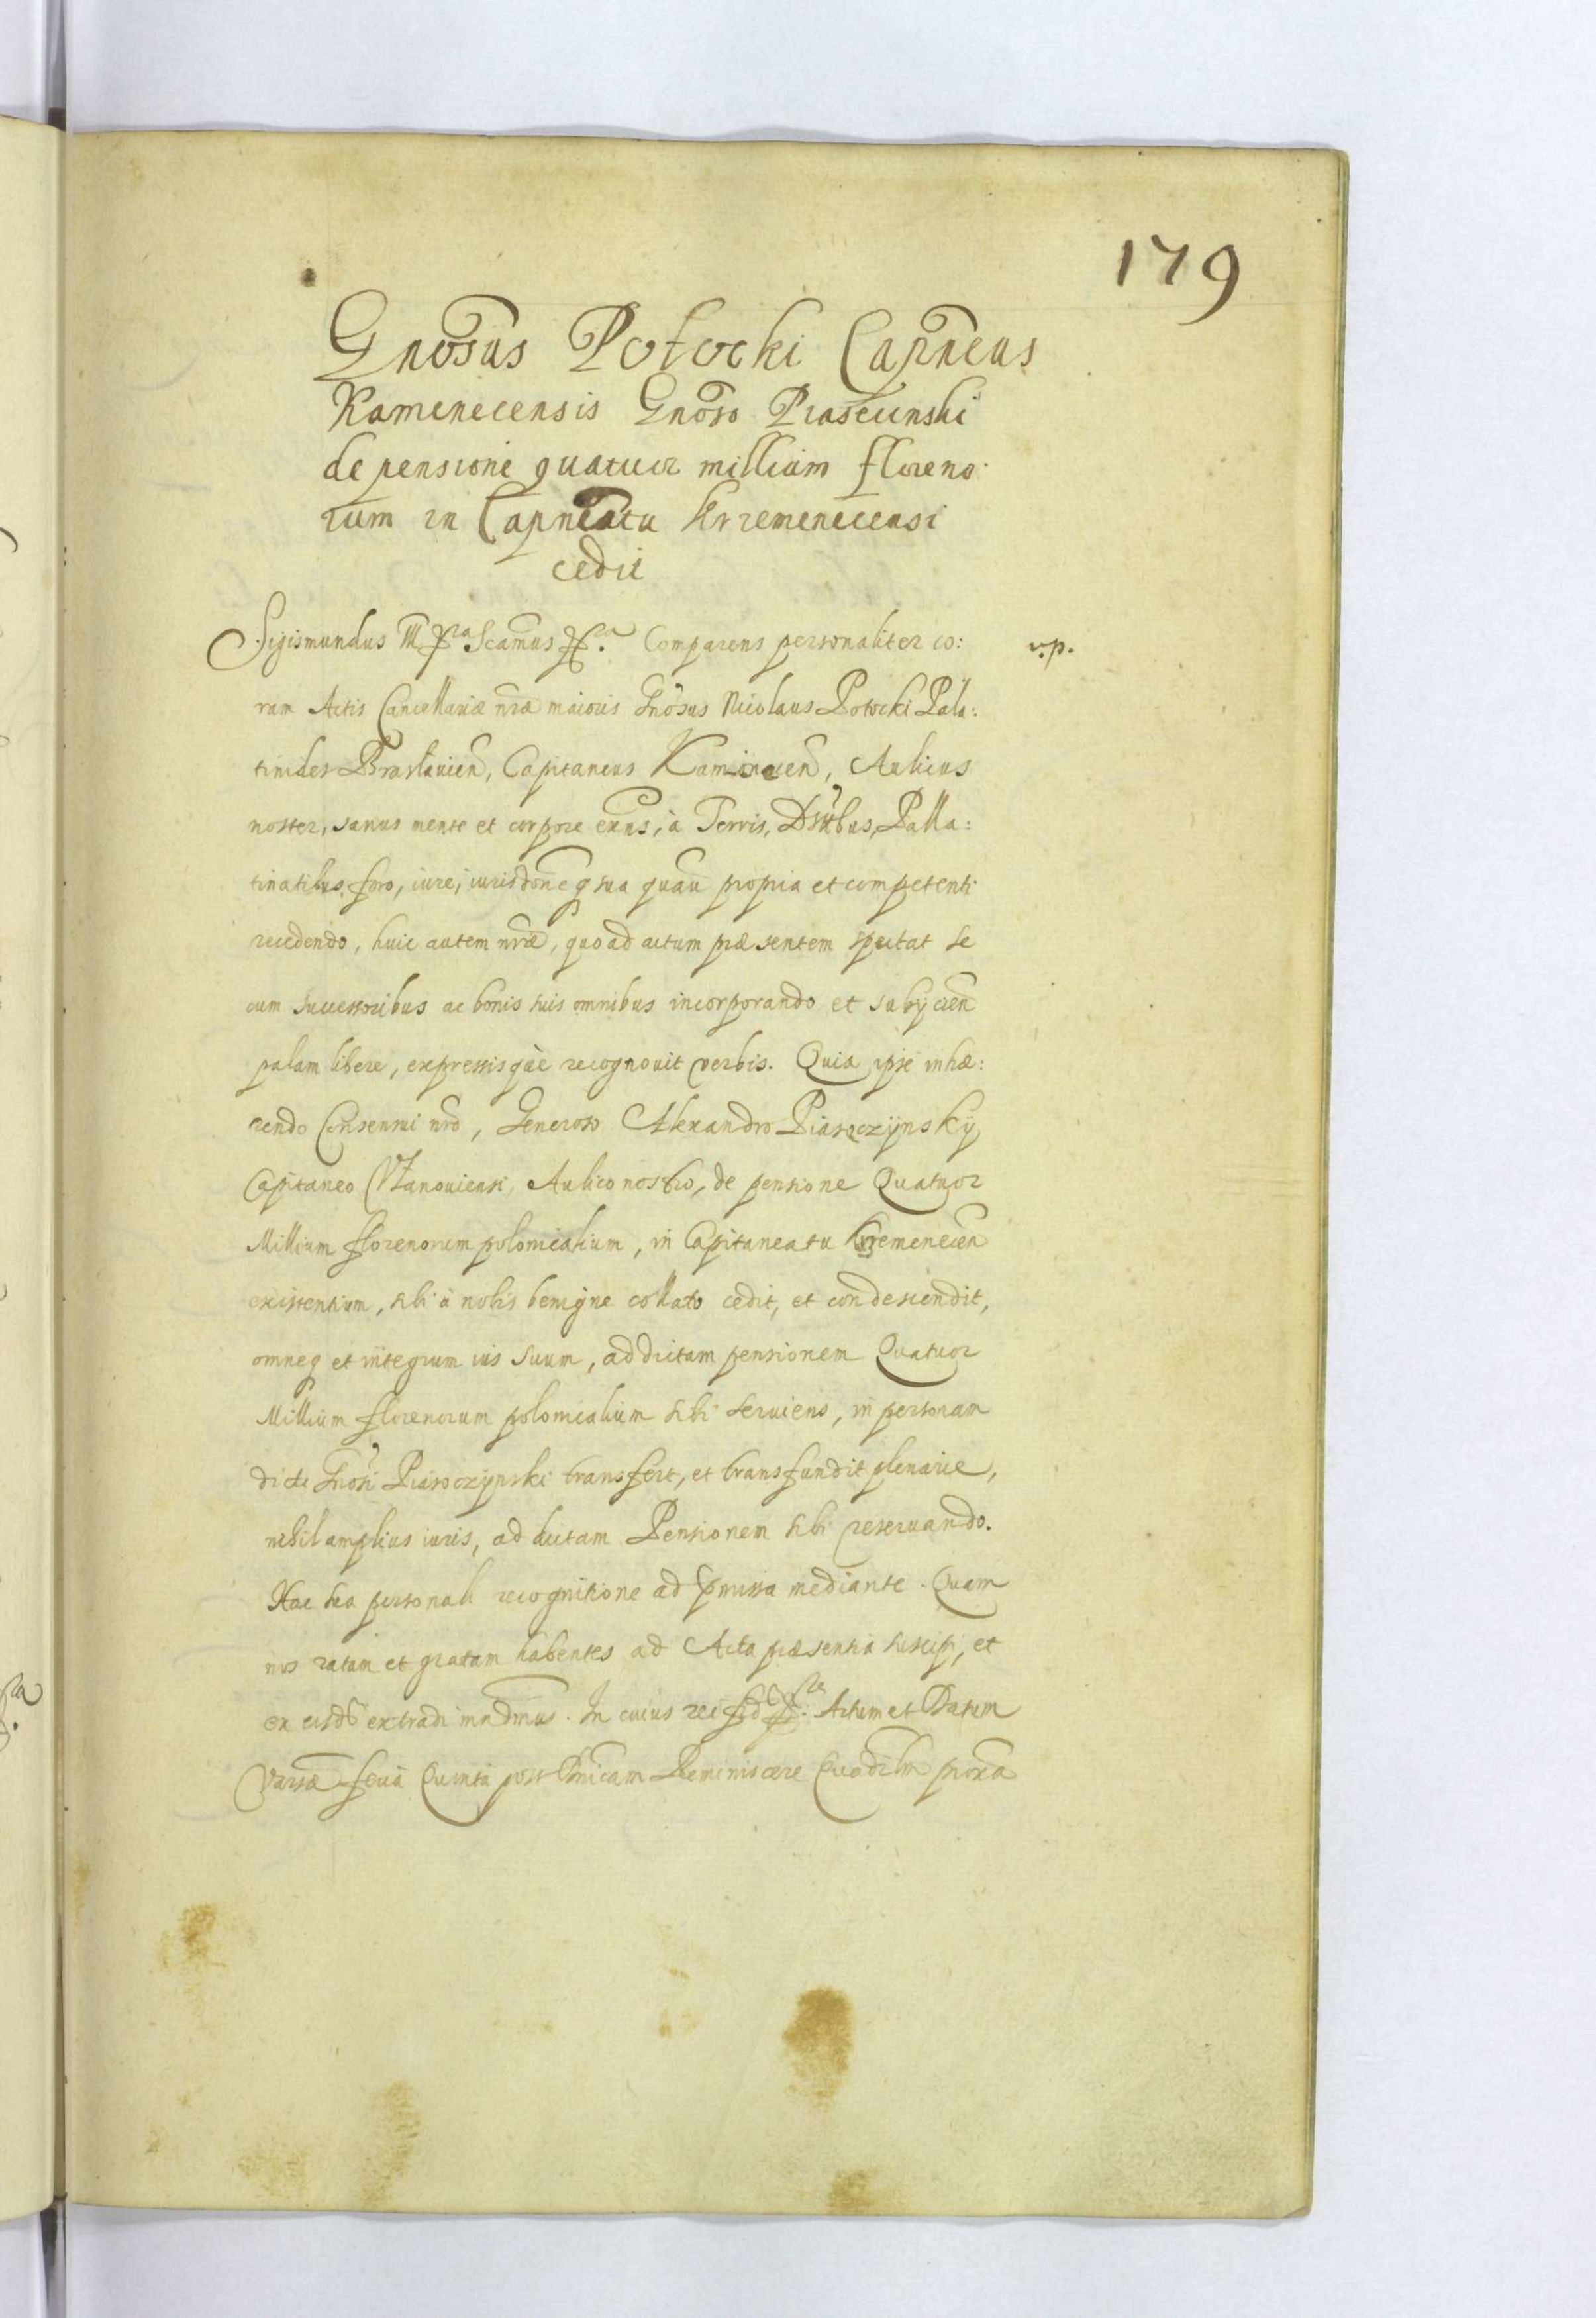 179
Gnosus Potocki Capneus
Kamenecensis Gnoso Piasecinski
de pensione quatuor millium floreno:
rum in Capneatu Krzemenecensi
cedit
Sigismundus III Scamus Comparens personaliter co: v.p.
ram Actis Cancellariæ nræ maioris Gnosus Nicolaus Potocki Pala:
tinides Braslauien, Capitaneus Kamenecen, Aulicus
noster, sanus mente et corpore exns, à Terris, Palla:
tinatibus, foro, iure, iurisdoneq sua quau propia et competenti
recedendo, huic autem nræ, quo ad actum præsentem spectat se
cum successoribus ac bonis suis omnibus incorporando et subijcien
palam libere, expressisquè recognouit verbis. Quia ipse inhæ:
rendo Consensui nro, Generoso Alexandro Piasoczynsky
Capitaneo Vlanouiensi, Aulico nostro, de pensione Quatuor
Millium florenorum polonicalium, in Capitaneatu Kremenecen
existentium, sibi à nobis benigne collato cedit, et condescendit,
omneq et integrum ius suum, ad dictam pensionem Quatuor
Millium florenorum polonicalium sibi seruiens, in personam
dicti Gnosi Piasoczynski transfert, et transfundit plenarie,
nihil amplius iuris, ad dictam Pensionem sibi reseruando.
Hac sea personali recognitione ad pmissa mediante. Quam
nos ratam et gratam habentes ad Acta præsentia suscipi, et
ex eisd extradi mndmus. In cuius rei fid Actum et Datum
Varsæ feria Quinta post Dnicam Reminiscere Quadrlm proxa